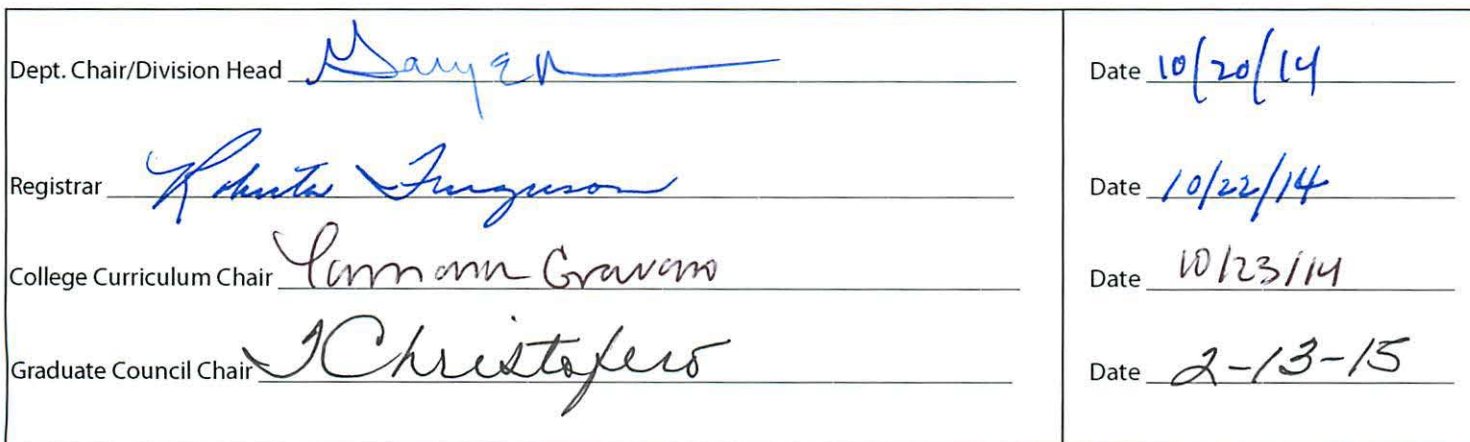 Dept. Chair/Division Head Date 10/20/14
Registrar Roberta Ferguson Date 10/22/14
College Curriculum Chair Date 10/23/14
Graduate Council Chair Christofero Date 2-13-15